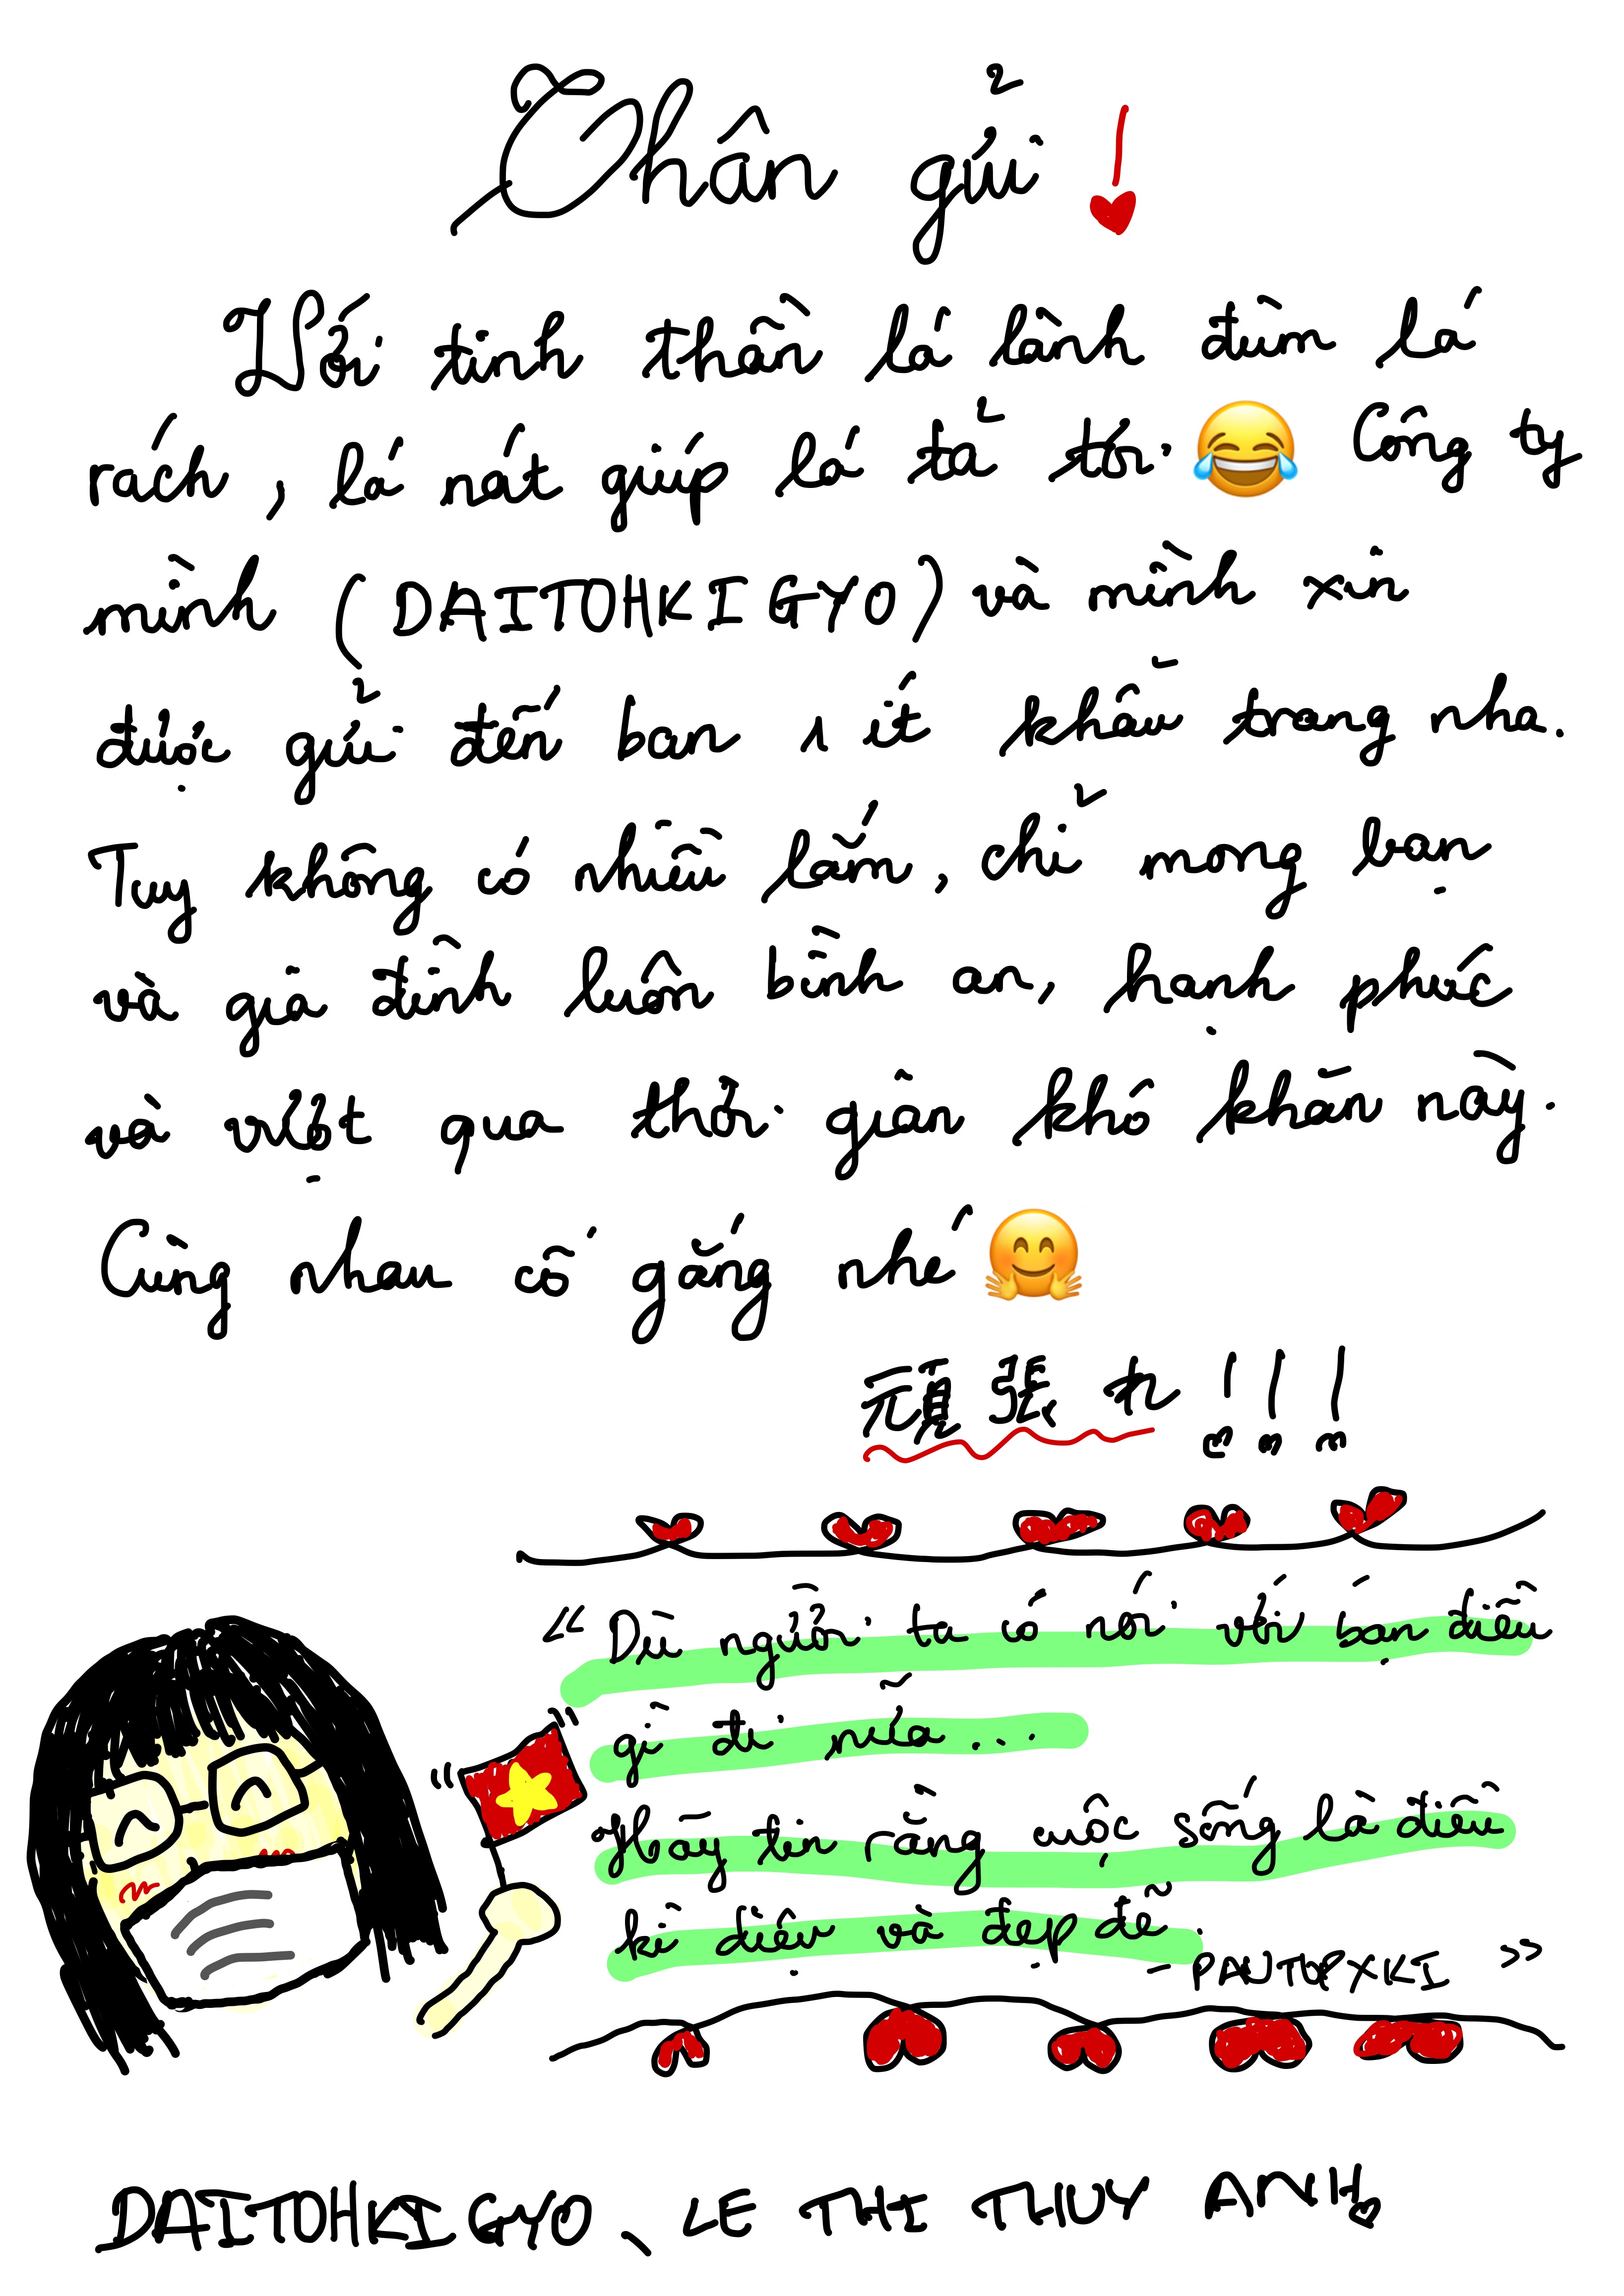 Thân gửi !
Với tinh thần lá lành đùm lá
rách, lá nát giúp lá tả tơi 😂 Công ty
mình (DAITOHKIGYO) và mình xin
được gửi đến bạn 1 ít khẩu trang nha.
Tuy không có nhiều lắm, chỉ mong bạn
và gia đình luôn bình an, hạnh phúc
và vượt qua thời gian khó khăn này.
Cùng nhau cố gắng nhé 🤗
頑張れ!!!
“ Dù người ta có nói với bạn điều
gì đi nữa...
Hãy tin rằng cuộc sống là điều
kì diệu và đẹp đẽ.
- PAUTOPXKI ”
DAITOHKIGYO、LE THI THUY ANH